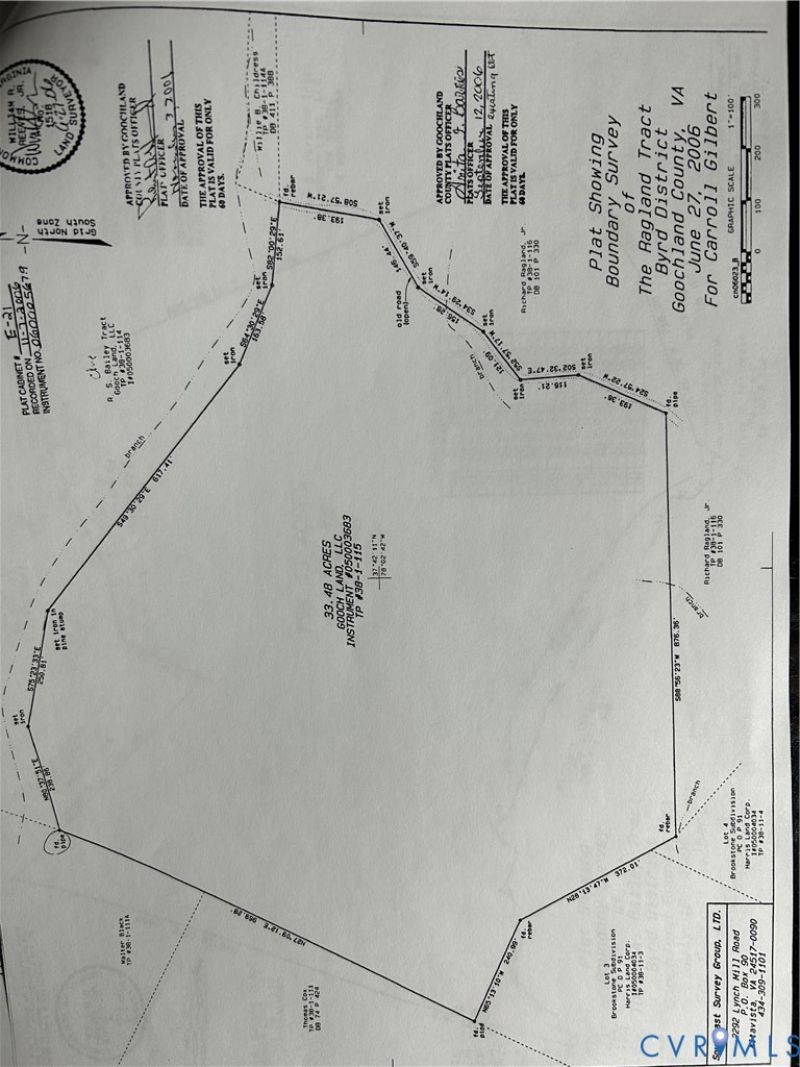 Plat Showing
Boundary Survey
of
The Ragland Tract
Byrd District
Goochland County, VA
June 27, 2006
For Carroll Gilbert
GRAPHIC SCALE 1"=100'
0 100 200 300
cn06023_B
PLAT CABINET# E-21
RECORDED ON 11-7-2006
INSTRUMENT NO.
WILLIAM R.
REEVES, JR.
LAND SURVEYOR
Grid North
South Zone
-N-
APPROVED BY GOOCHLAND
COUNTY PLATS OFFICER
PLAT OFFICER
DATE OF APPROVAL
THE APPROVAL OF THIS
PLAT IS VALID FOR ONLY
60 DAYS.
APPROVED BY GOOCHLAND
COUNTY PLATS OFFICER
PLATS OFFICER
September 12, 2006
DATE OF APPROVAL
THE APPROVAL OF THIS
PLAT IS VALID FOR ONLY
60 DAYS.
Willie B. Childress
TP #38-1-114A
DB 411 P 388
R. S. Bailey Tract
Gooch Land, LLC
TP #38-1-114
I#050003683
33.48 ACRES
GOOCH LAND, LLC
INSTRUMENT #050003683
TP #38-1-115
37°42'11"N
78°02'42"W
Richard Ragland, Jr.
TP #38-1-116
DB 101 P 330
Richard Ragland, Jr.
TP #38-1-116
DB 101 P 330
Walter Black
TP #38-1-111A
Thomas Cox
TP #38-1-111
DB 74 P 424
Lot 3
Brookstone Subdivision
PC D P 91
Harris Land Corp.
I#050004034
TP #38-11-3
Lot 4
Brookstone Subdivision
PC D P 91
Harris Land Corp.
I#050004034
TP #38-11-4
fd.
pipe
N80°37'51"E
238.86'
set
iron
S75°23'33"E
250.81'
set iron in
pine stump
S49°30'29"E 617.41'
branch
set
iron
S64°30'29"E
163.58'
set
iron
S82°00'29"E
152.61'
fd.
rebar
S08°57'21"W
193.38'
set
iron
S59°40'37"W
146.44'
set
iron
old road
(open)
S34°29'14"W
156.28'
set
iron
S52°57'17"W
121.09'
branch
set
iron
S02°32'47"E
116.21'
set
iron
S24°57'22"W
193.36'
fd.
pipe
S88°56'23"W 876.36'
branch
fd.
rebar
branch
N28°13'47"W 372.01'
fd.
rebar
N65°13'10"W 240.99'
fd.
pipe
N27°09'12"E 959.28'
Survey Group, LTD.
2292 Lynch Mill Road
P.O. Box 90
Altavista, VA 24517-0090
434-309-1101
CVRMLS